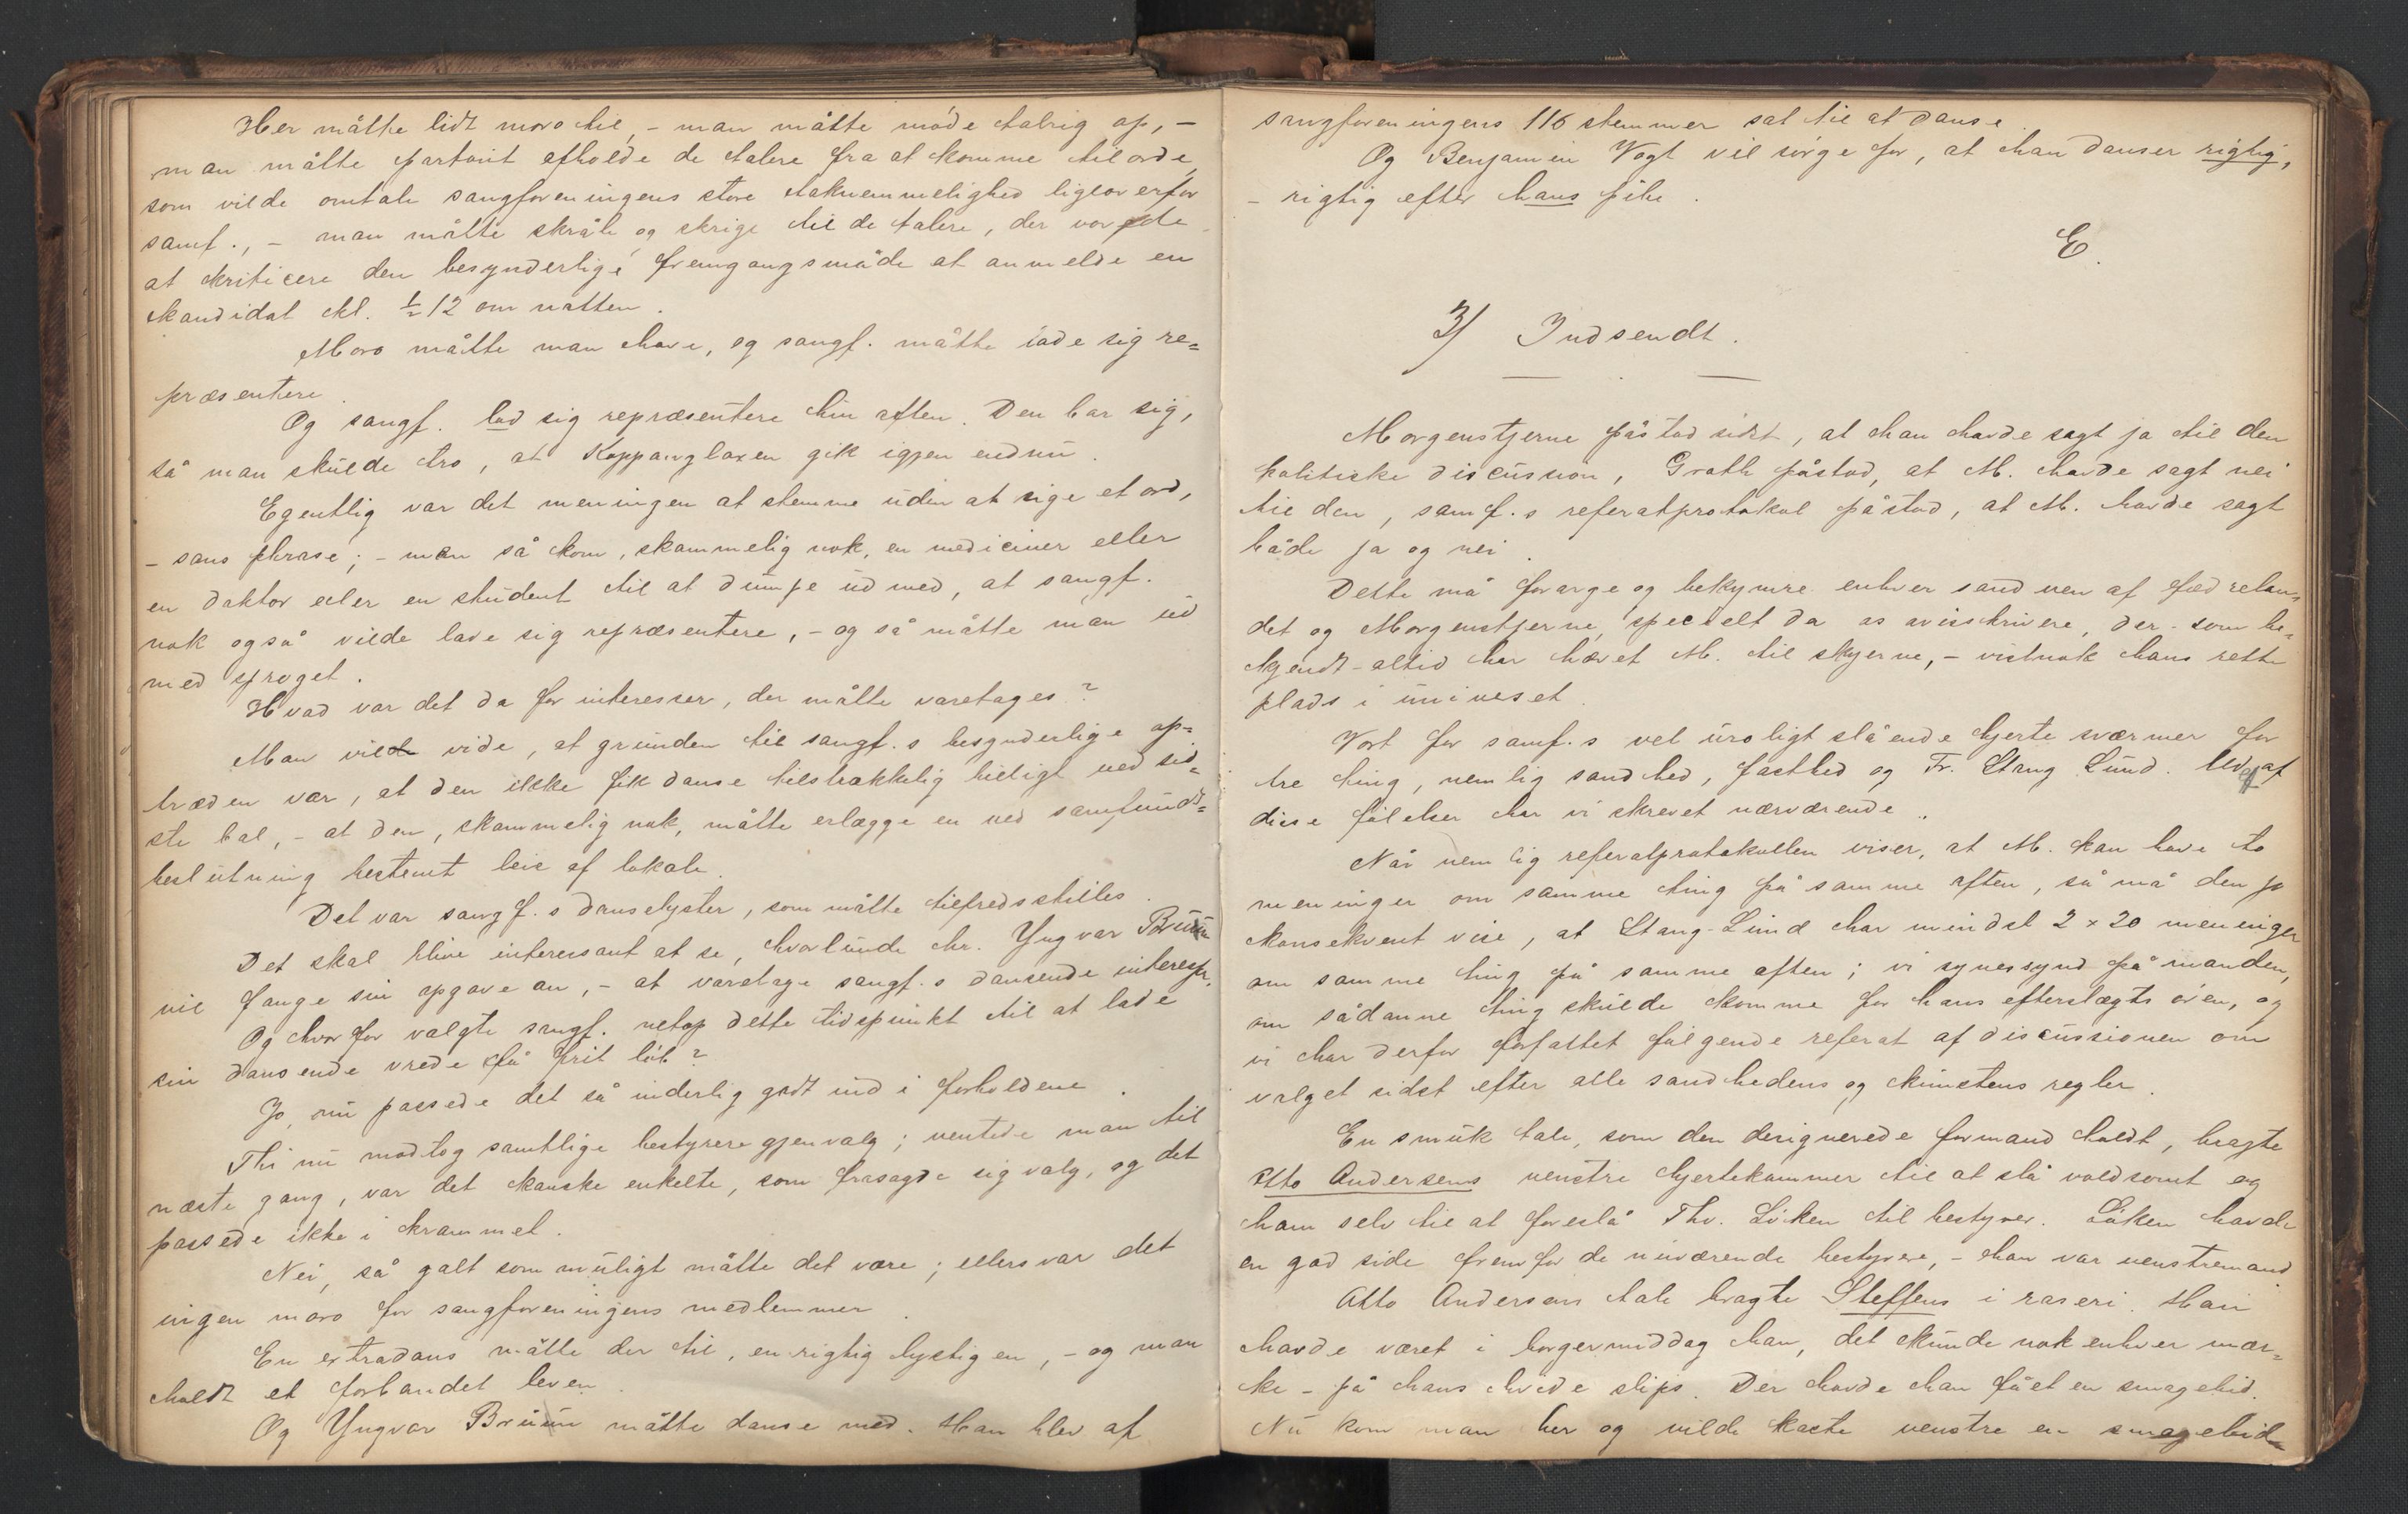 Her måtte lidt moro til, – man måtte møde talrig op, –
man måtte partout afholde de talere fra at komme til orde,
som vilde omtale sangforeningens store taknemmelighed ligeoverfor
samf., – man måtte skråle og skrige til de talere, der vovede
at kriticere den besynderlige fremgangsmåde at anmelde en
kandidat kl. ½12 om natten.
Moro måtte man have, og sangf. måtte lade sig re=
præsentere.
Og sangf. lod sig repræsentere hin aften. Den bar sig,
så man skulde tro, at Koppanglaxen gik igjen endnu.
Egentlig var det meningen at stemme uden at sige et ord,
– sans phrase; – men så kom, skammelig nok, en mediciner eller
en doktor eller en student til at dumpe ud med, at sangf.
nok også vilde lade sig repræsentere, – og så måtte man ud
med sproget.
Hvad var det da for interesser, der måtte varetages?
Man vil vide, at grunden til sangf.s besynderlige op=
træden var, at den ikke fik danse tilstrækkelig billigt ved sid=
ste bal, – at den, skammelig nok, måtte erlægge en ved samfunds=
beslutning bestemt leie af lokale.
Det var sangf.s danselyster, som måtte tilfredsstilles.
Det skal blive interessant at se, hvorlunde hr. Yngvar Bruun
vil fange sin opgave an, – at varetage sangf.s dansende interesser.
Og hvorfor valgte sangf. netop dette tidspunkt til at lade
sin dansende vrede få frit løb?
Jo, nu passede det så inderlig godt ind i forholdene.
Thi nu modtog samtlige bestyrere gjenvalg; ventede man til
næste gang, var det kanske enkelte, som frasagde sig valg, og det
passede ikke i krammet.
Nei, så galt som muligt måtte det være; ellers var det
ingen moro for sangforeningens medlemmer.
En extradans måtte der til, en rigtig lystig en, – og man
holdt et forbandet leven.
Og Yngvar Bruun måtte danse med. Han blev af
sangforeningens 116 stemmer sat til at danse.
Og Benjamin Vogt vil sørge for, at han danser rigtig,
– rigtig efter hans pibe.
E.
3) Indsendt.
Morgenstjerne påstod sidst, at han havde sagt ja til den
politiske discussion, Groth påstod, at M. havde sagt nei
til den, samf.s referatprotokol påstod, at M. havde sagt
både ja og nei.
Dette må forarge og bekymre enhver sand ven af fædrelan=
det og Morgenstjerne, specielt da os avisskrivere, der – som be=
kjendt – altid har hævet M. til skyerne, – vistnok hans rette
plads i universet.
Vort for samf.s vel uroligt slående hjerte sværmer for
tre ting, nemlig sandhed, fasthed og Fr. Stang Lund. Ud af
disse følelser har vi skrevet nærværende.
Når nemlig referatprotokollen viser, at M. kan have to
meninger om samme ting på samme aften, så må den jo
konsekvent vise, at Stang-Lund har mindst 2 × 20 meninger
om samme ting på samme aften; vi synes synd på manden,
om sådanne ting skulde komme for hans efterslægts øren, og
vi har derfor forfattet følgende referat af discussionen om
valget sidst efter alle sandhedens og kunstens regler.
En smuk tale, som den designerede formand holdt, bragte
Otto Andersens venstre hjertekammer til at slå voldsomt og
ham selv til at foreslå Thv. Løken til bestyrer. Løken havde
en god side fremfor de nuværende bestyrere, – han var venstremand.
Otto Andersens tale bragte Steffens i raseri. Han
havde været i borgermiddag han, det kunde nok enhver mær=
ke – på hans hvide slips. Der havde han fået en smagebid.
Nu kom man her og vilde kaste venstre en smagebid